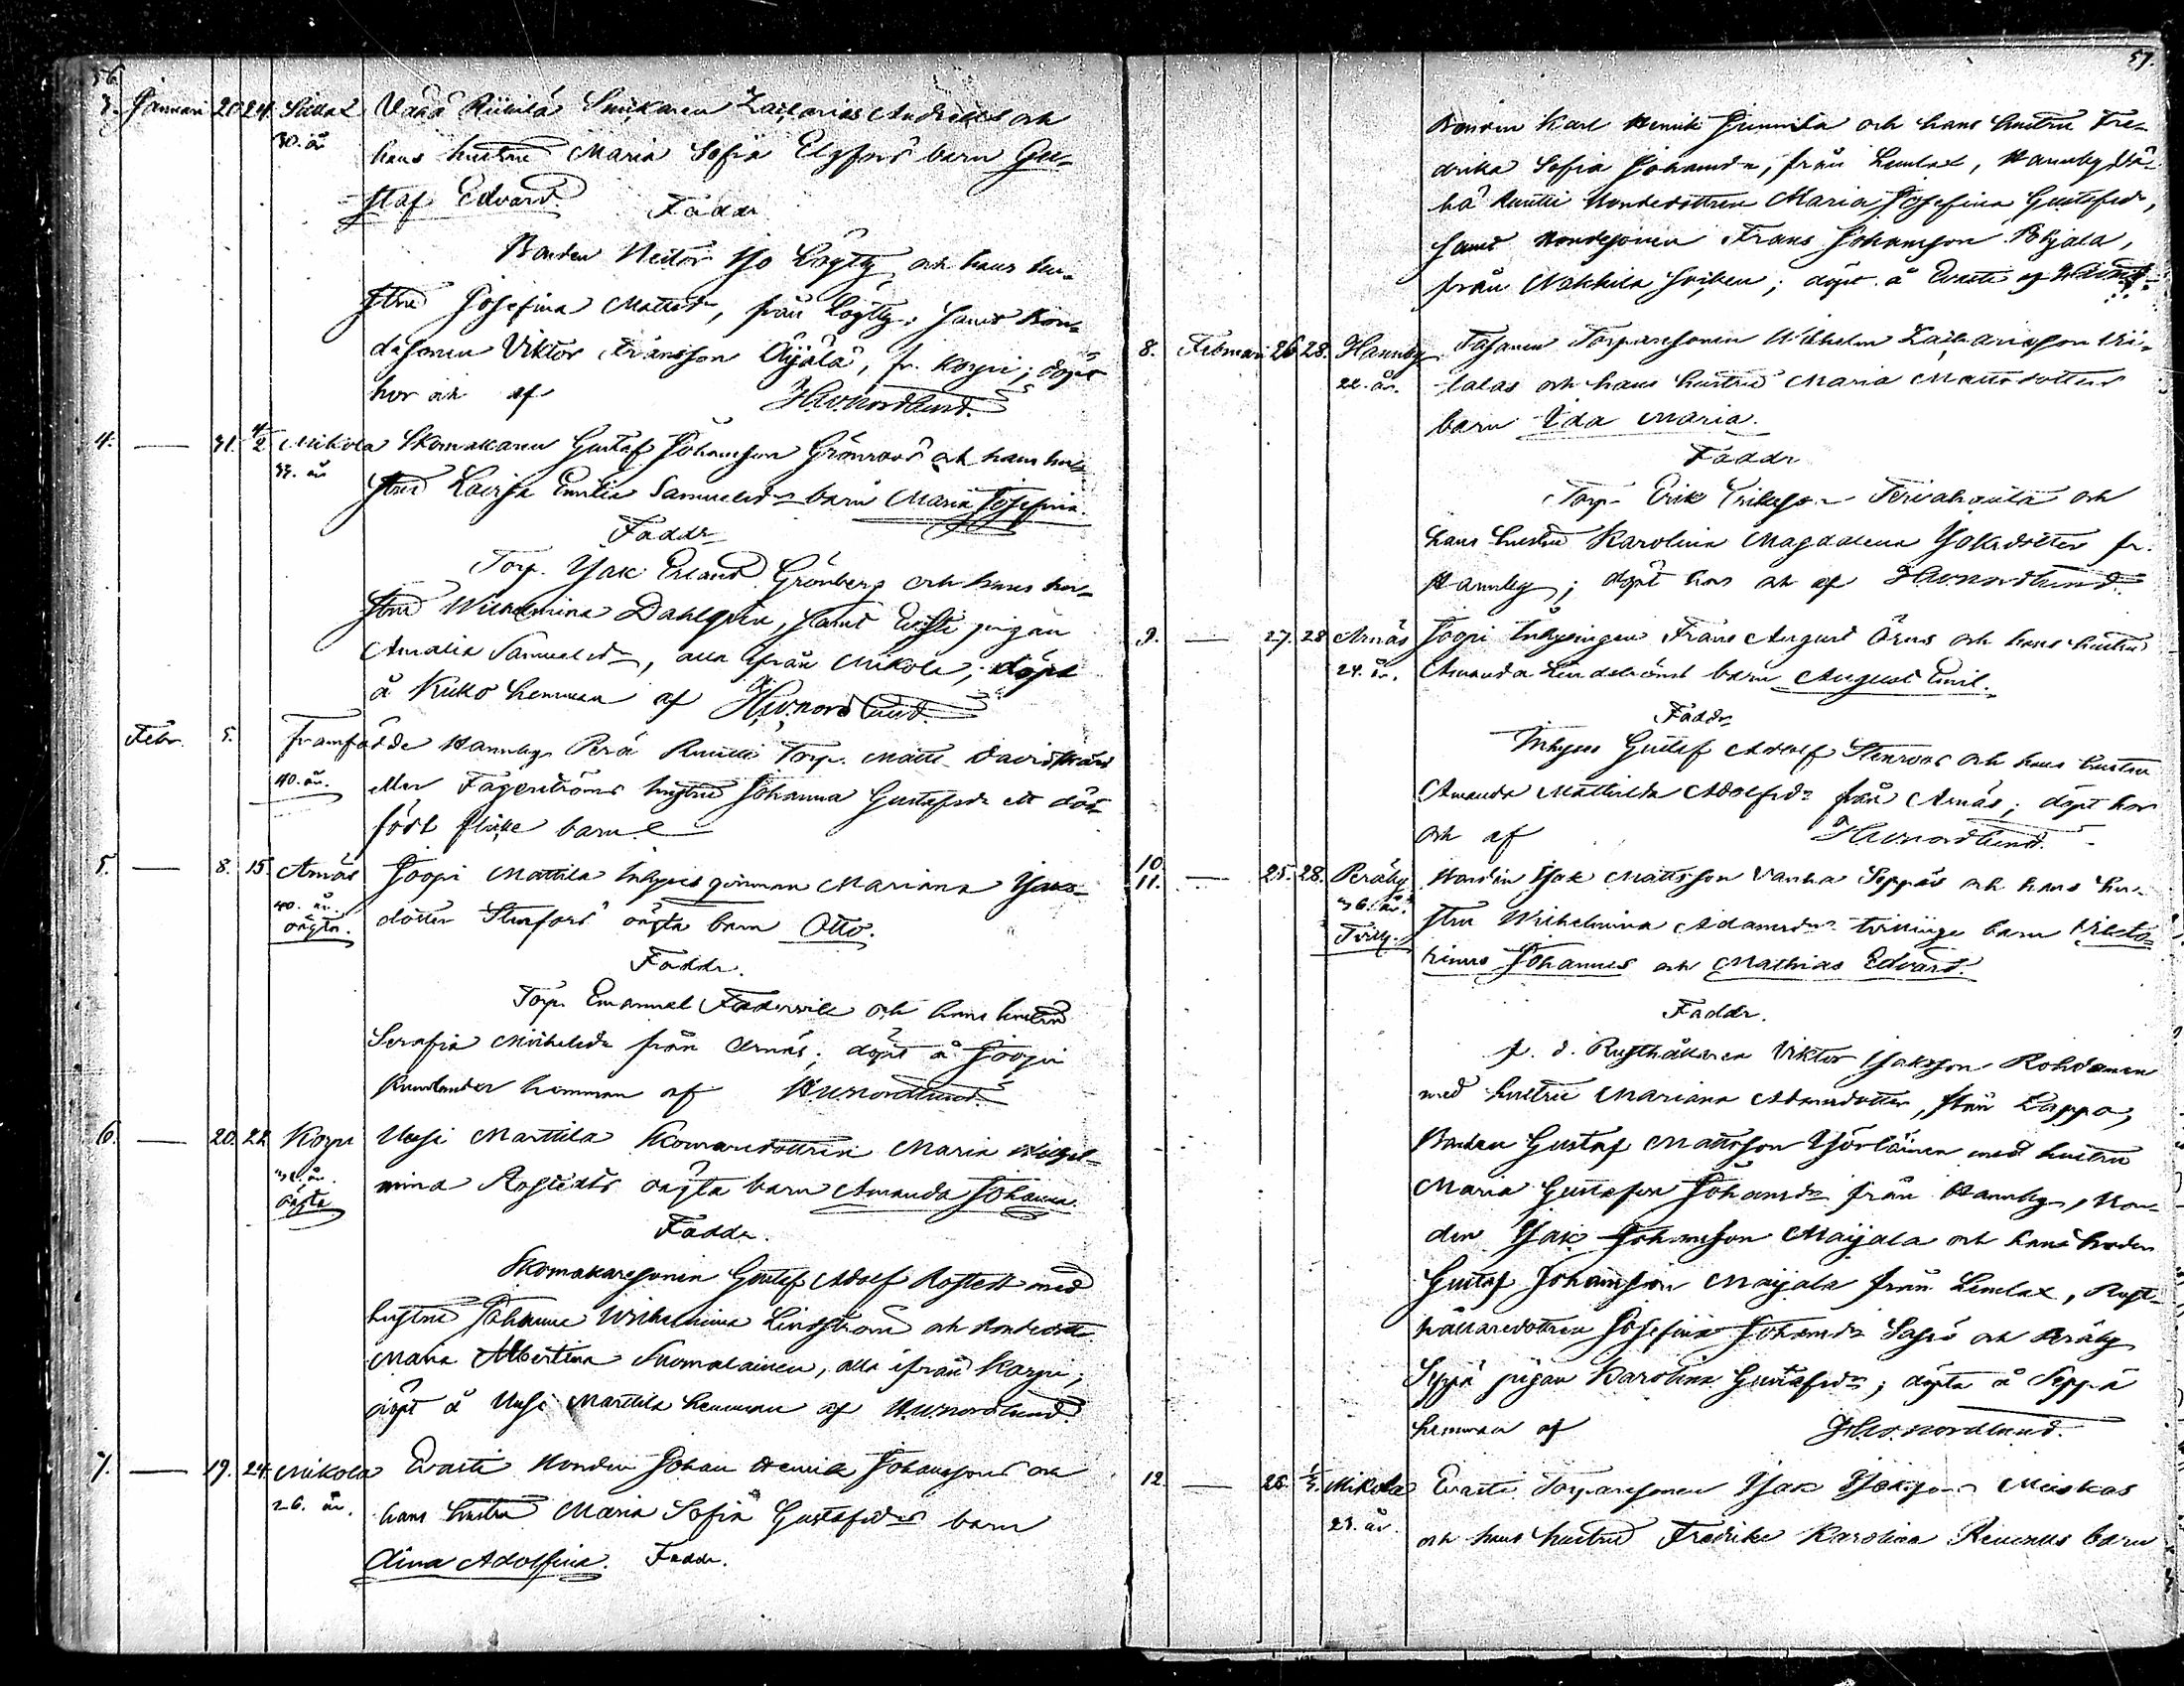 56
3. Januari 20 24. Saulat Vähä Riihilä Smickaren Zacharias Andreæs och
30. år hans hustru Maria Sofia Elgfors barn Gu-
staf Edvard.
Faddr
Bonden Heitor Iso Löytty och hans hu-
stru Josefina Mattsdr, från Löytty; samt Bon-
desonen Viktor Fransson Äijälä, fr. Korpi; döpt
hos och af H.W. Nordlund.
4. — 31. 4/2 Mikola Skomakaren Gustaf Johansson Grönroos och hans hu-
33. år stru Lovisa Emilia Samuelsdr barn Maria Josefina.
Faddr
Torp. Isak Erland Grönberg och hans hu-
stru Wilhelmina Dahlqvin, samt Erasti pigan
Amalia Samuelsdr, alla ifrån Mikola; döpt
å Kuko hemman af H.W. Nordlund.
Febr. 5. Framfödde Hannuby Perä Ruutti Torp. Matts Davidssons
40. år. eller Fagerströms hustru Johanna Gustafsdr ett död-
född flicke barn.
5. — 8. 15. Arnäs Joopi Mattila Inhyses qvinnan Mariana Isaks-
40. år. dotter Stenfors' oägta barn Otto.
oägta.
Faddr.
Torp. Emanuel Fadervill och hans hustru
Serafia Mickelsdr från Arnäs; döpt å Joopi
hemman af H.W. Nordlund.
6. — 20. 22 Korpi Uusi Marttila Skomaredottren Maria Wilhel-
år. mina Rostedts oägta barn Amanda Johanna.
oägta
Faddr.
Skomakaresonen Gustaf Adolf Rostedt med
hustru Johanna Wilhelmina Lindström och Bondedottr.
Maria Albertina Suomalainen, alla ifrån Korpi;
döpt å Uusi Marttila hemman af H.W. Nordlund.
7. — 19. 24. Mikola Erasti Bonden Johan Henrik Johanssons och
26. år. hans hustru Maria Sofia Gustafsdrs barn
Aina Adolfina. Faddr.
57.
Bonden Karl Henrik Junnila och hans hustru Fre-
drika Sofia Johansdr, från Lemlax, Hannuby Vä-
hä Ruutti Bondedottren Maria Josefina Gustafsdr,
samt Bondesonen Frans Johansson Pohjala,
från Nakkila Socken; döpt å Erasti af H.W. Nordl.
8. Februari 26 28. Hannuby Tasanen Torparesonen Wilhelm Zachariasson Vii-
22. år. lalas och hans hustru Maria Mattsdotters
barn Ida Maria.
Faddr
Torp. Erik Eriksson Tervahauta och
hans hustru Karolina Magdalena Isaksdotter fr.
Hannuby; döpt hos och af H.W. Nordlund.
9. — 27. 28 Arnäs Joopi Inhysingen Frans August Örns och hans hustru
24. år. Amanda Lindströms barn August Emil.
Faddr
Inhyses Gustaf Adolf Stenroos och hans hustru
Amanda Mathilda Adolfsdr från Arnäs; döpt hos
och af H.W. Nordlund.
10.
11. — 25. 28. Peräby Bonden Isak Mattsson Vanha Seppäs och hans hu-
36. år. stru Wilhelmina Adamsdrs tvillinge barn Victo-
Tvill. rinus Johannes och Mathias Edvard.
Faddr.
f. d. Rusthållaren Viktor Isaksson Rohdainen
med hustru Mariana Adamsdotter, från Lappo,
Bonden Gustaf Mattsson Yböläinen med hustru
Maria Gustafva Johansdr från Hannuby, Bon-
den Isak Johansson Maijala och hans broder
Gustaf Johansson Maijala från Lemlax, Rust-
hållaredottren Josefina Johansdr och Peräby
Seppä pigan Karolina Gustafsdr; döpta å Seppä
hemman af H.W. Nordlund.
12. — 26. 1/3. Mikola Erasti Torparesonen Isak Isaksson Meiskas
23. år. och hans hustru Fredrika Karolina Revenus barn